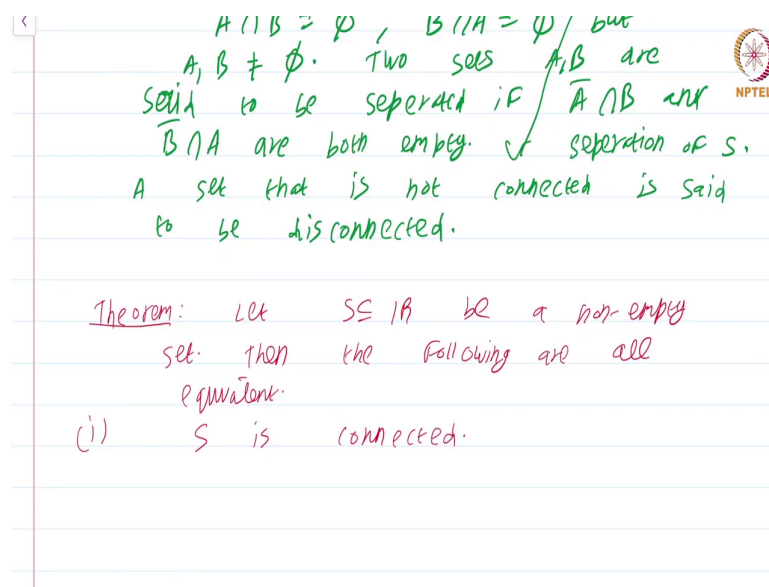 A ∩ B = ∅, B ∩ A = ∅, but
A, B ≠ ∅. Two sets A, B are
said to be seperated if A̅ ∩ B and
B̅ ∩ A are both empty. seperation of S.
A set that is not connected is said
to be disconnected.
NPTEL
Theorem: Let S ⊆ ℝ be a non-empty
set. Then the following are all
equivalent.
(i) S is connected.